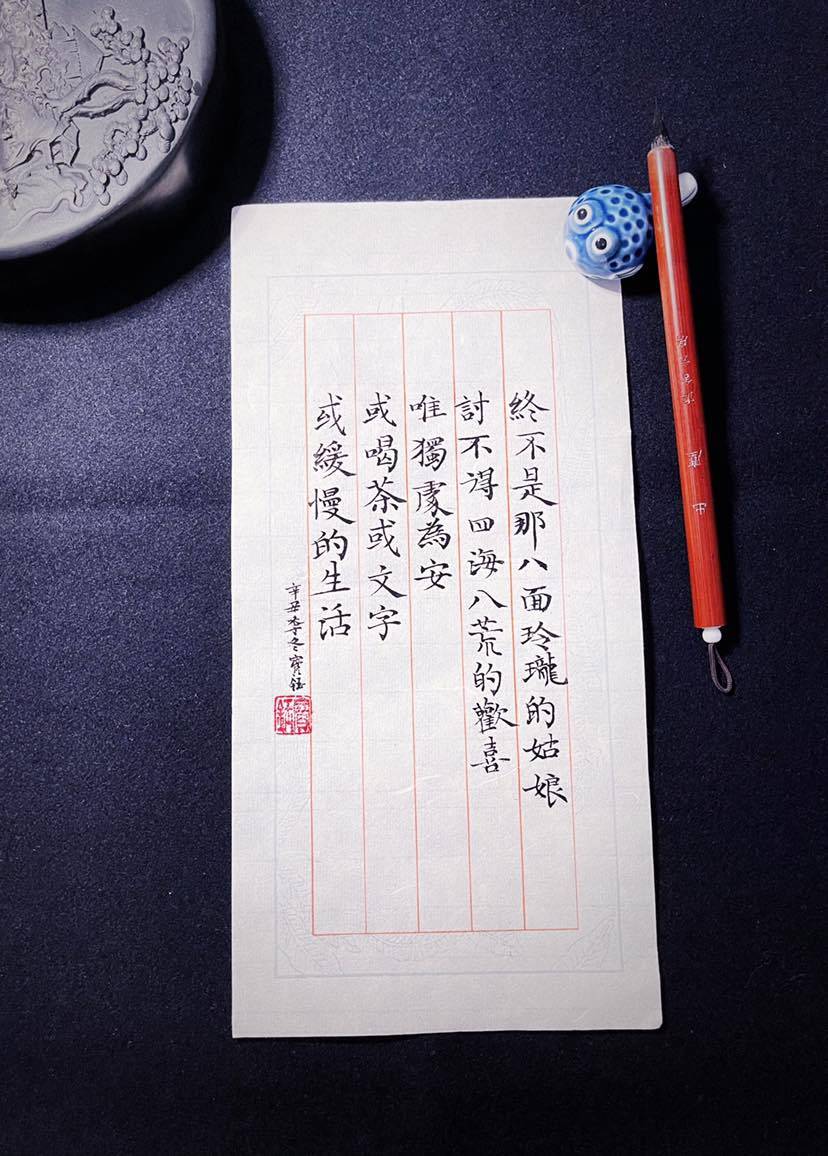 終不是那八面玲瓏的姑娘
討不得四海八荒的歡喜
唯獨處為安
或喝茶或文字
或緩慢的生活
辛丑季冬寶鈺